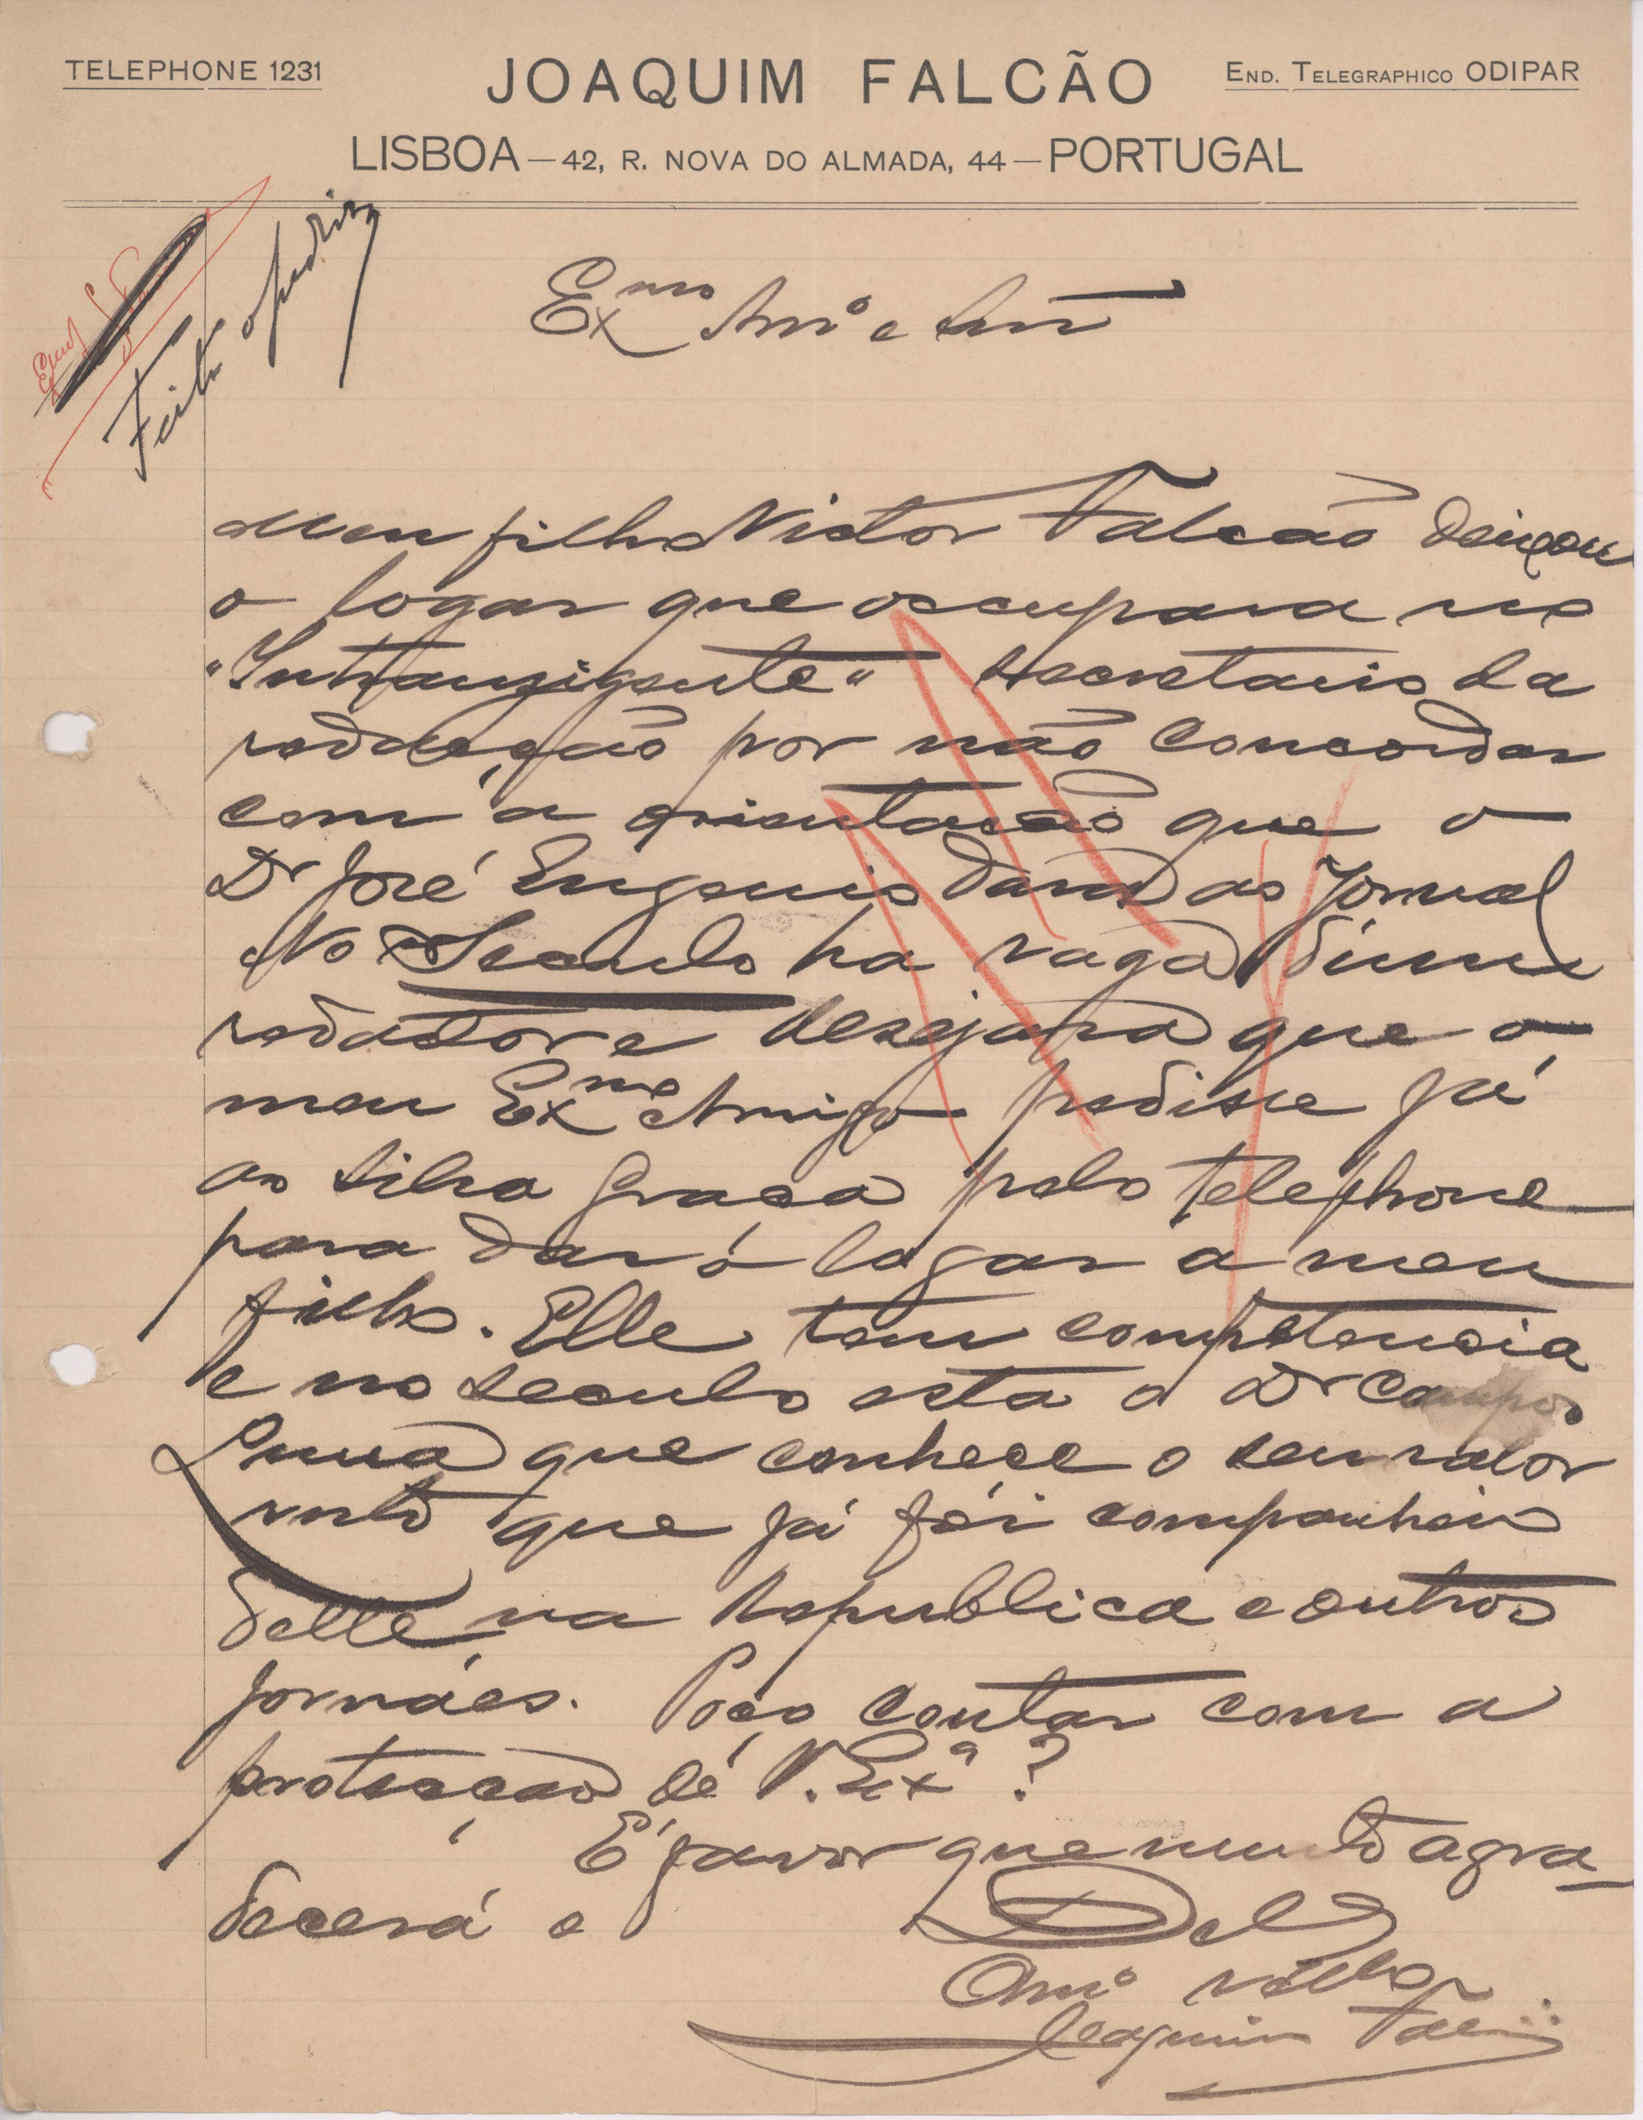 TELEPHONE 1231
JOAQUIM FALCÃO
END. TELEGRAPHICO ODIPAR
LISBOA — 42, R. NOVA DO ALMADA, 44 — PORTUGAL
Feito o pedido
Exmo Amo e Snr
Meu filho Victor Falcão deixou
o logar que occupava no
"Intranzigente" secretario da
redacção por não concordar
com a orientação que o
Dr José Eugenio dava ao Jornal
No Seculo ha vaga d'um
redactor e desejava que o
meu Exmo Amigo pedisse já
ao Silva Graça pelo telephone
para dar o logar a meu
filho. Elle tem competencia
e no Seculo está o Dr Campos
Lima que conhece o seu valor
visto que já foi companheiro
delle na Republica e outros
jornáes. Poço contar com a
protecção de V. Exª ?
É favor que muito agra-
decerá o
De V
Amo velho
Joaquim Falcão